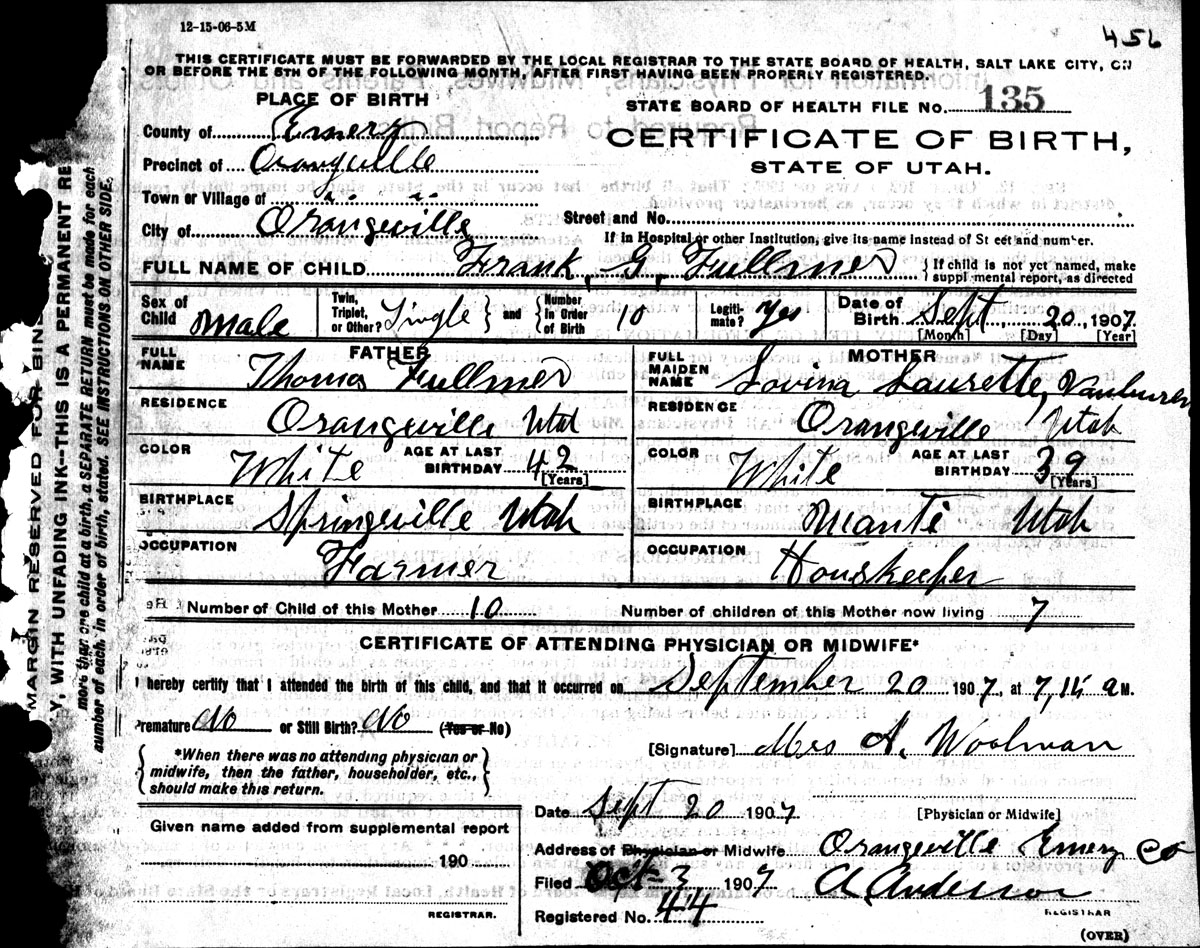 12-15-06-5M
456
THIS CERTIFICATE MUST BE FORWARDED BY THE LOCAL REGISTRAR TO THE STATE BOARD OF HEALTH, SALT LAKE CITY, ON
OR BEFORE THE 5TH OF THE FOLLOWING MONTH, AFTER FIRST HAVING BEEN PROPERLY REGISTERED.
PLACE OF BIRTH
STATE BOARD OF HEALTH FILE No. 135
County of Emery
CERTIFICATE OF BIRTH,
Precinct of Orangeville
STATE OF UTAH.
Town or Village of
City of Orangeville
Street and No.
If in Hospital or other Institution, give its name instead of St eet and number.
FULL NAME OF CHILD Frank. G. Fullmer { If child is not yet named, make
suppl mental report, as directed
Sex of Child Male
Twin, Triplet, or Other? Single } and { Number in Order of Birth 10
Legitimate? Yes
Date of Birth Sept. 20, 1907.
[Month] [Day] [Year]
FATHER
FULL NAME Thomas Fullmer
MOTHER
FULL MAIDEN NAME Lovina Laurette, Vanburen
RESIDENCE Orangeville Utah
RESIDENCE Orangeville Utah
COLOR White AGE AT LAST BIRTHDAY 42 [Years]
COLOR White AGE AT LAST BIRTHDAY 39 [Years]
BIRTHPLACE Springville Utah
BIRTHPLACE Manti Utah
OCCUPATION Farmer
OCCUPATION Houskeeper
Number of Child of this Mother 10 Number of children of this Mother now living 7
CERTIFICATE OF ATTENDING PHYSICIAN OR MIDWIFE*
I hereby certify that I attended the birth of this child, and that it occurred on September 20 1907, at 7,15 a M.
Premature No or Still Birth? No (Yes or No)
[Signature] Mrs A. Woolman
*When there was no attending physician or
midwife, then the father, householder, etc.,
should make this return.
Date Sept 20 1907
[Physician or Midwife]
Given name added from supplemental report
190
REGISTRAR.
Address of Physician or Midwife Orangeville Emery Co
Filed Oct 3 1907 A Anderson
REGISTRAR
Registered No. 44
(OVER)
MARGIN RESERVED FOR BIN
Y, WITH UNFADING INK—THIS IS A PERMANENT RE
more than one child at a birth, a SEPARATE RETURN must be made for each
number of each, in order of birth, stated. SEE INSTRUCTIONS ON OTHER SIDE.